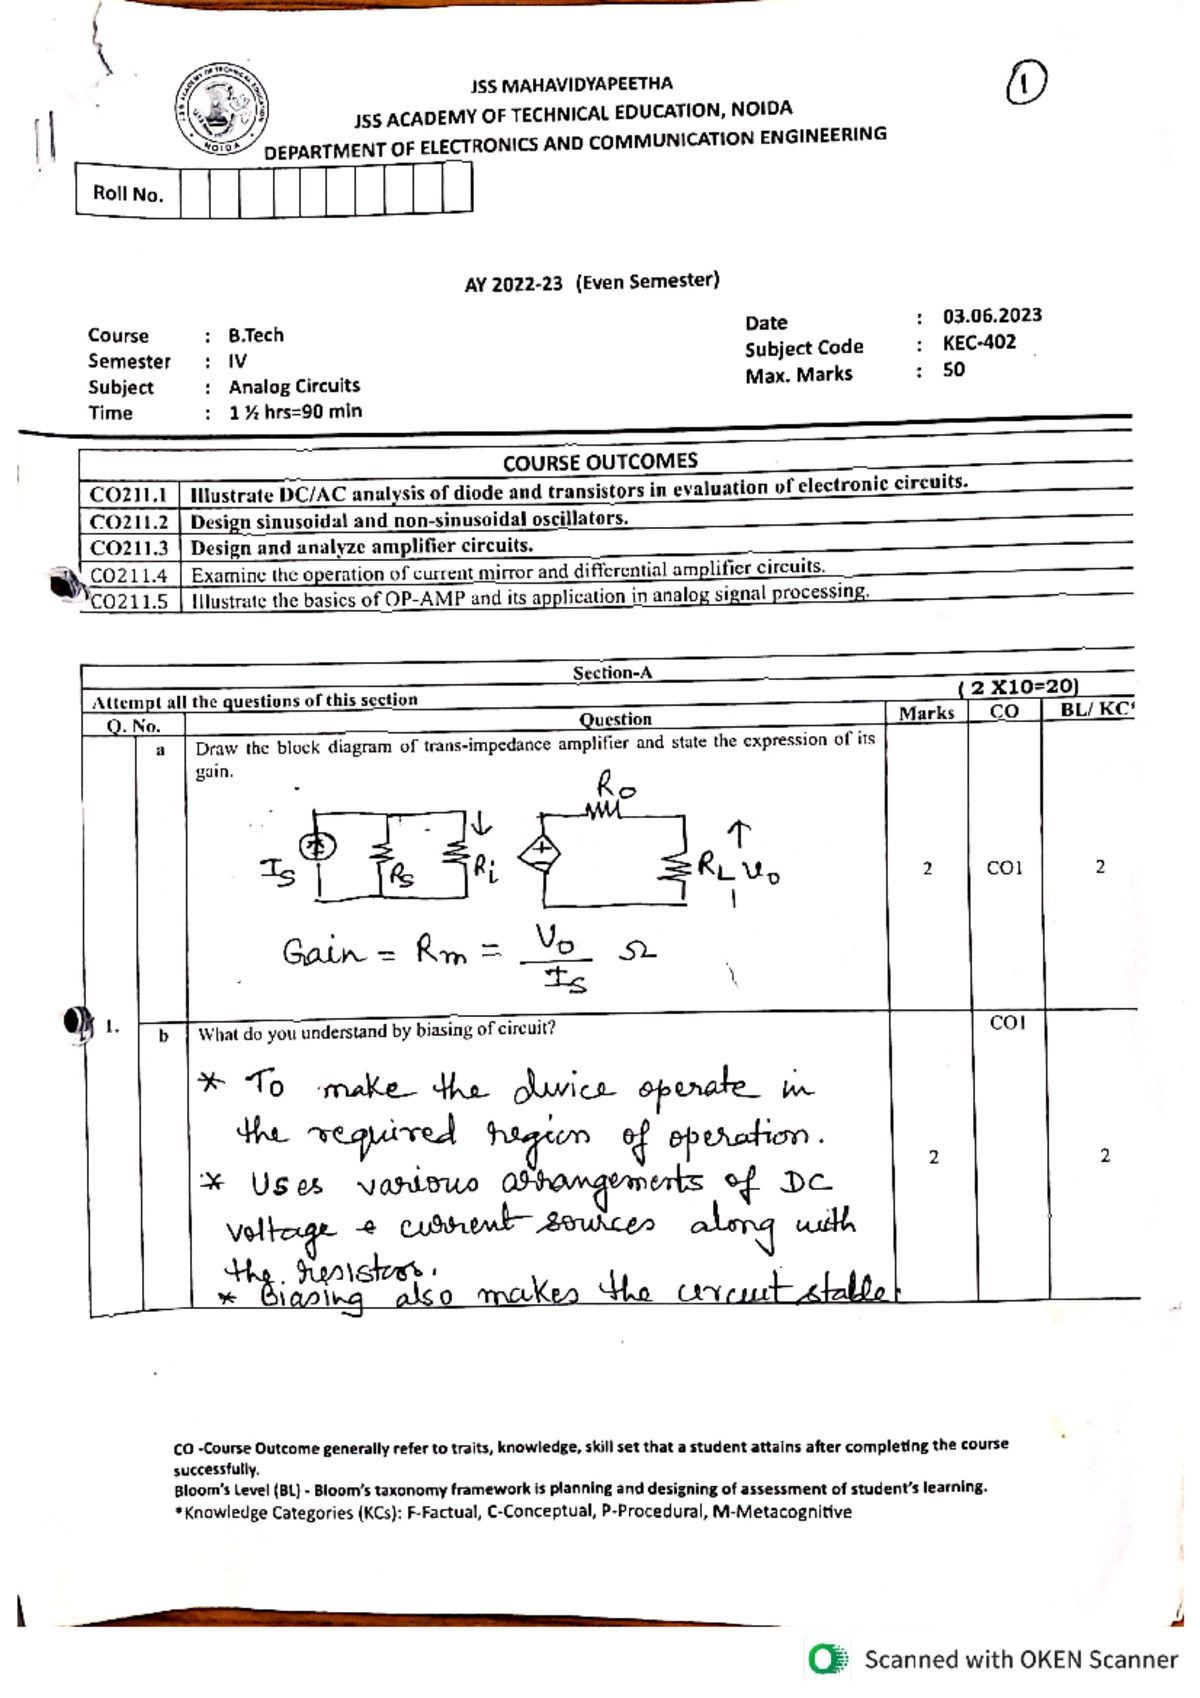 1
JSS MAHAVIDYAPEETHA
JSS ACADEMY OF TECHNICAL EDUCATION, NOIDA
DEPARTMENT OF ELECTRONICS AND COMMUNICATION ENGINEERING
Roll No.
AY 2022-23 (Even Semester)
Course : B.Tech
Semester : IV
Subject : Analog Circuits
Time : 1 ½ hrs=90 min
Date : 03.06.2023
Subject Code : KEC-402
Max. Marks : 50
COURSE OUTCOMES
CO211.1 Illustrate DC/AC analysis of diode and transistors in evaluation of electronic circuits.
CO211.2 Design sinusoidal and non-sinusoidal oscillators.
CO211.3 Design and analyze amplifier circuits.
CO211.4 Examine the operation of current mirror and differential amplifier circuits.
CO211.5 Illustrate the basics of OP-AMP and its application in analog signal processing.
Section-A
Attempt all the questions of this section ( 2 X10=20)
Q. No. Question Marks CO BL/ KC
a Draw the block diagram of trans-impedance amplifier and state the expression of its
gain.
Ro
Is Rs Ri RL Vo
2 CO1 2
Gain = Rm = Vo / Is Ω
1. b What do you understand by biasing of circuit? CO1
* To make the device operate in
the required region of operation.
2 2
* Uses various arrangements of DC
voltage & current sources along with
the resistors.
* Biasing also makes the circuit stable.
CO -Course Outcome generally refer to traits, knowledge, skill set that a student attains after completing the course
successfully.
Bloom's Level (BL) - Bloom's taxonomy framework is planning and designing of assessment of student's learning.
*Knowledge Categories (KCs): F-Factual, C-Conceptual, P-Procedural, M-Metacognitive
Scanned with OKEN Scanner